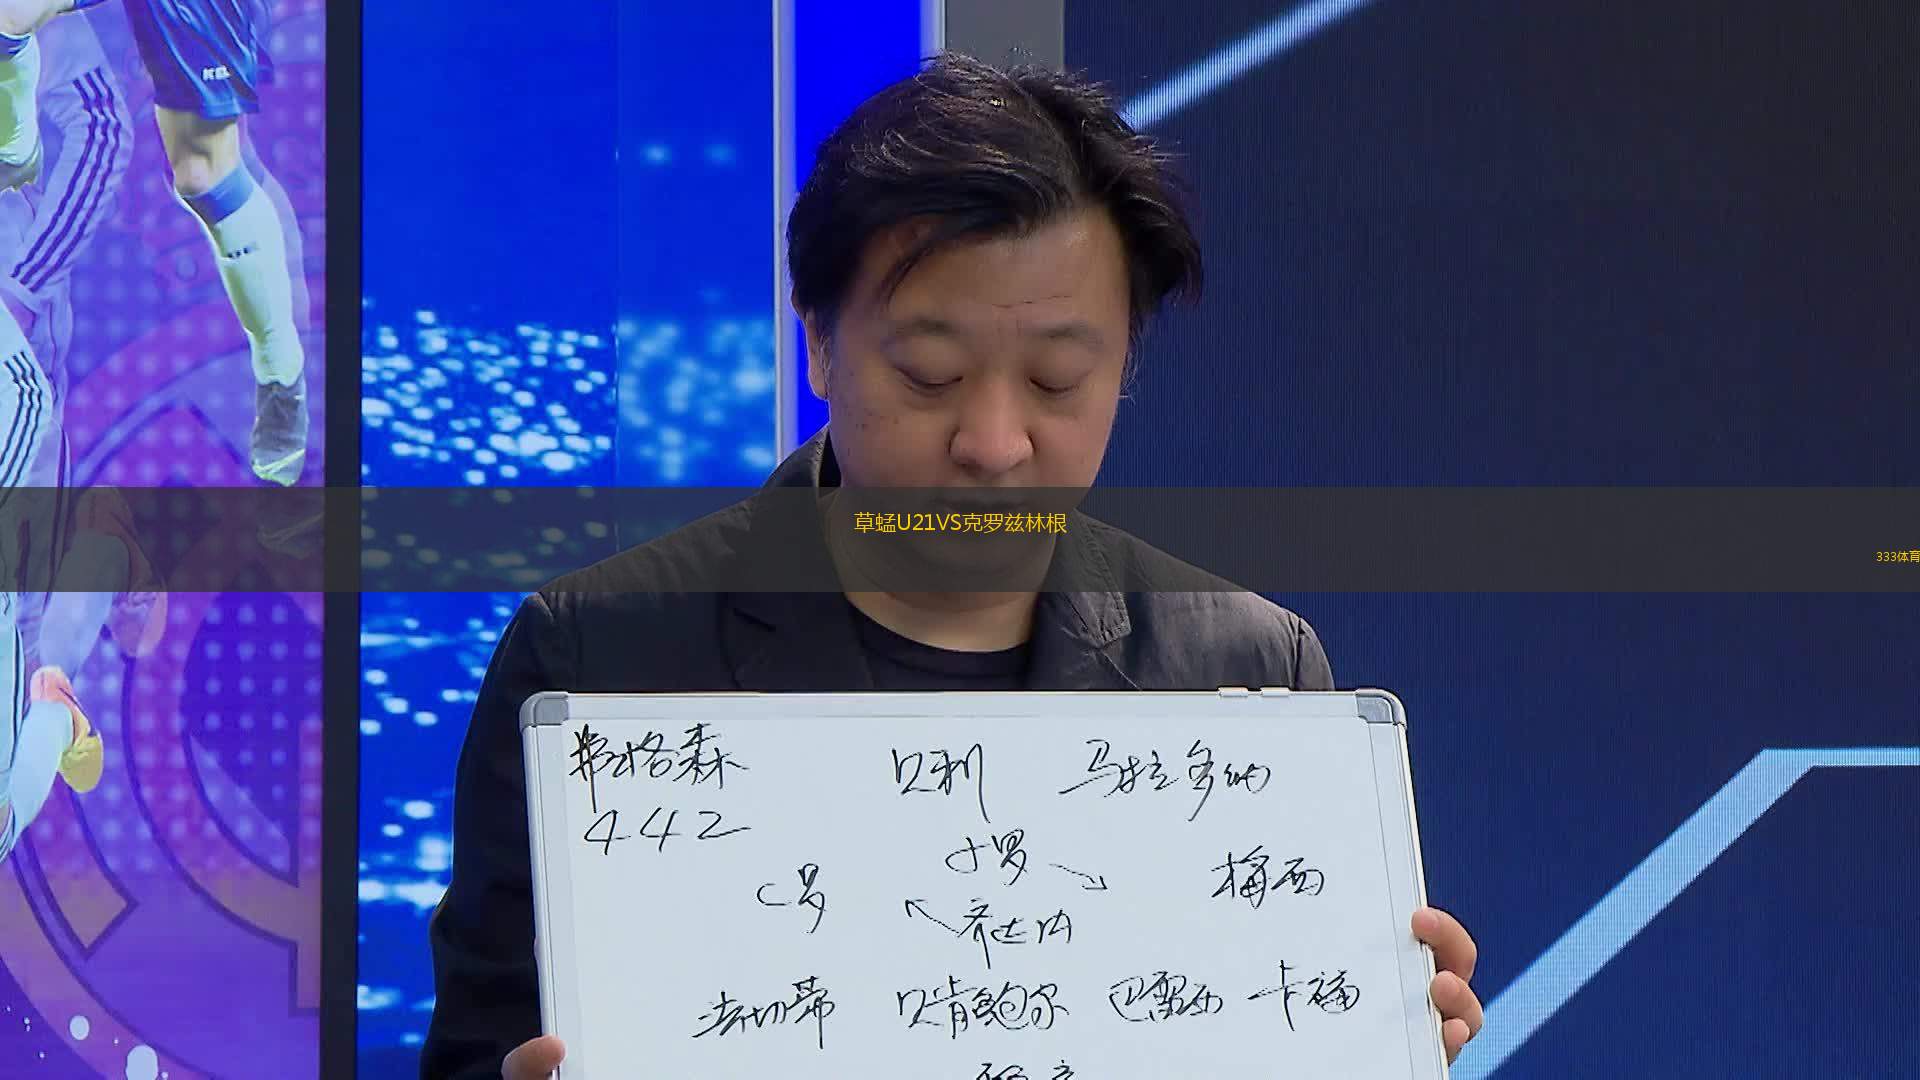 草蜢U21VS克罗兹林根
333体育
弗格森 贝利 马拉多纳
442
小罗
C罗 梅西
齐达内
法切蒂 贝肯鲍尔 巴雷西 卡福